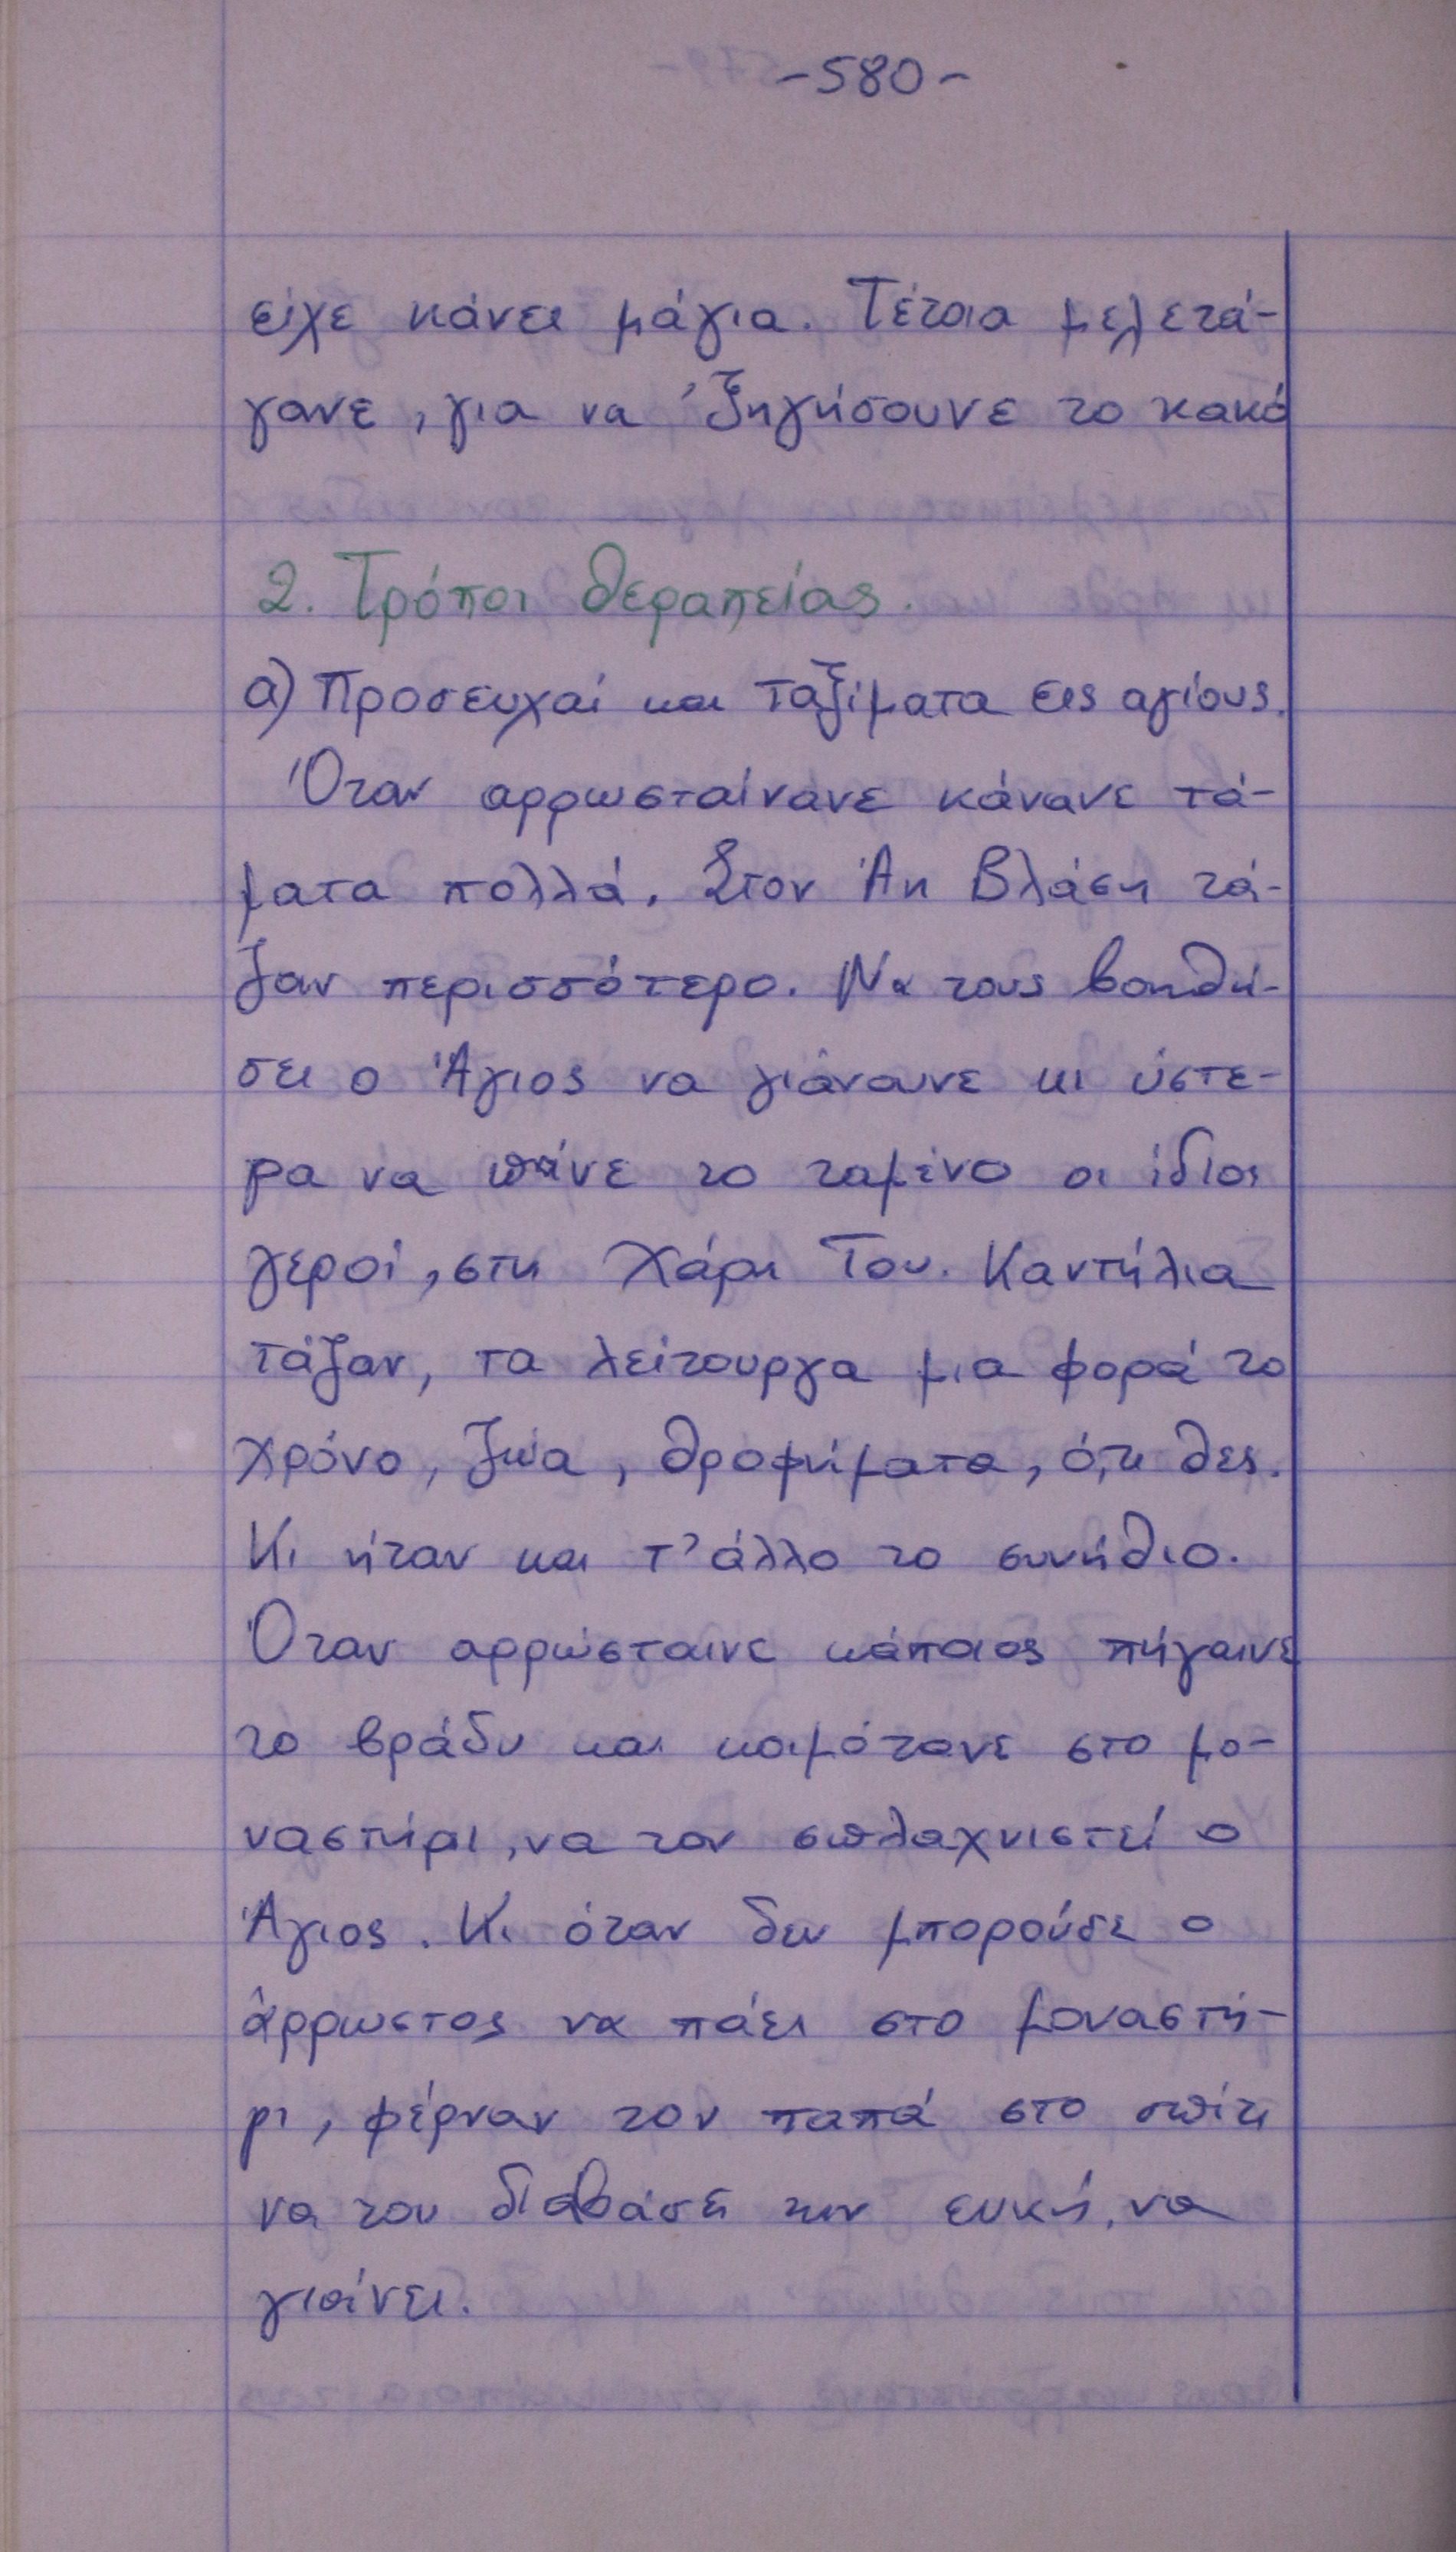 -580-
είχε κάνει μάγια. Τέτοια μελετά-
γανε, για να 'ξηγήσουνε το κακό
2. Τρόποι θεραπείας.
α) Προσευχαί και ταξίματα εις αγίους.
Όταν αρρωσταίνανε κάνανε τά-
ματα πολλά. Στον Άη Βλάση τά-
ζαν περισσότερο. Να τους βοηθή-
σει ο Άγιος να γιάνουνε κι ύστε-
ρα να πάνε το ταμένο οι ίδιοι
γεροί, στη Χάρη Του. Καντήλια
τάζαν, τα λείτουργα μια φορά το
χρόνο, ζώα, θροφήματα, ό,τι θες.
Κι ήταν και τ' άλλο το συνήθιο.
Όταν αρρώσταινε κάποιος πήγαινε
το βράδυ και κοιμότανε στο μο-
ναστήρι, να τον σπλαχνιστεί ο
Άγιος. Κι όταν δεν μπορούσε ο
άρρωστος να πάει στο μοναστή-
ρι, φέρναν τον παπά στο σπίτι
να του διαβάσει την ευκή, να
γιάνει.